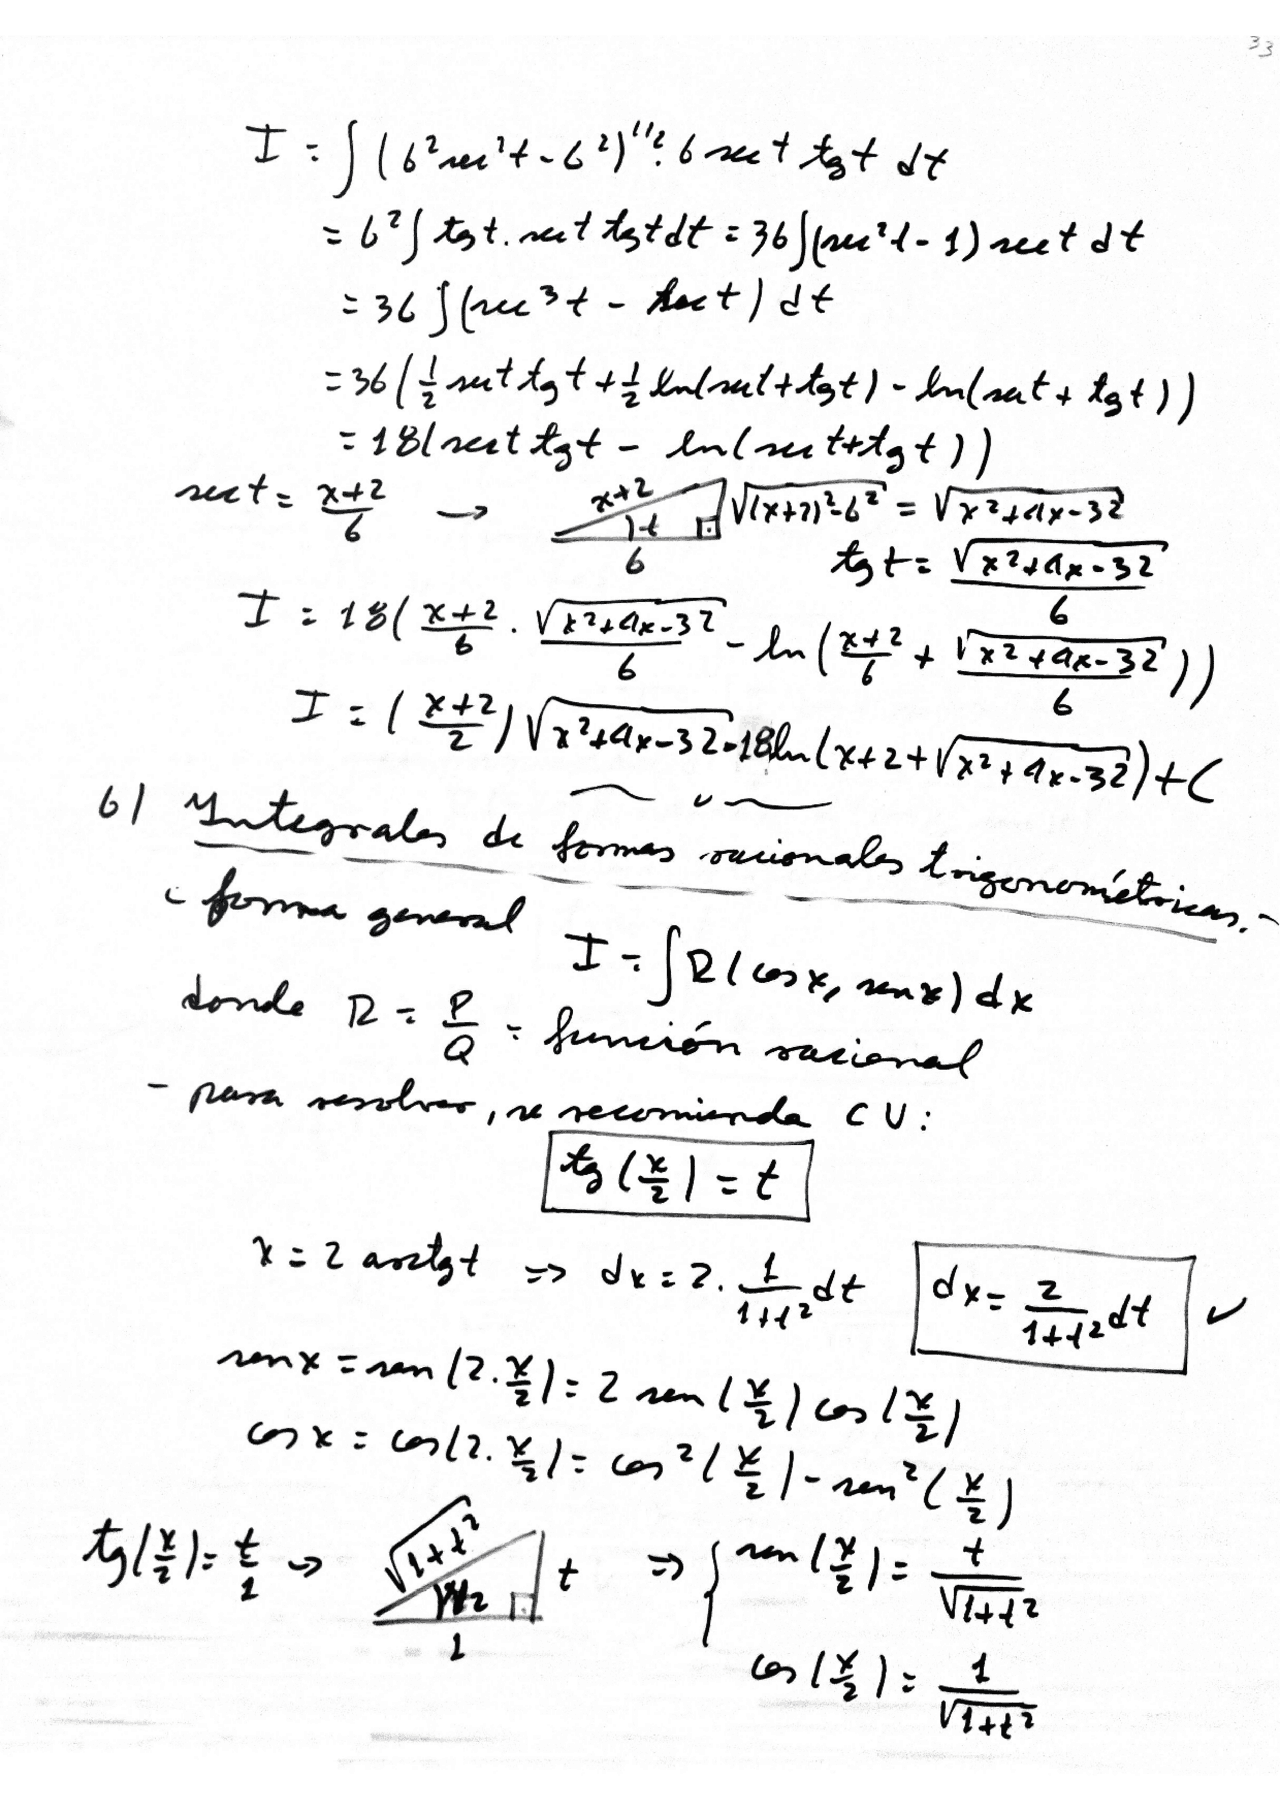 33
I = ∫ (6² sec² t - 6²)^{1/2} · 6 sec t tg t dt
= 6² ∫ tg t · sec t tg t dt = 36 ∫ (sec² t - 1) sec t dt
= 36 ∫ (sec³ t - sec t) dt
= 36 ( 1/2 sec t tg t + 1/2 ln(sec t + tg t) - ln(sec t + tg t) )
= 18 ( sec t tg t - ln(sec t + tg t) )
sec t = (x+2)/6 → x+2 t 6 √((x+2)² - 6²) = √(x² + 4x - 32)
tg t = √(x² + 4x - 32)/6
I = 18 ( (x+2)/6 · √(x² + 4x - 32)/6 - ln( (x+2)/6 + √(x² + 4x - 32)/6 ) )
I = ( (x+2)/2 ) √(x² + 4x - 32) - 18 ln( x+2 + √(x² + 4x - 32) ) + C
6) Integrales de formas racionales trigonométricas.-
- forma general
I = ∫ R(cos x, sen x) dx
donde R = P/Q = función racional
- para resolver, se recomienda CV:
tg(x/2) = t
x = 2 arctg t ⇒ dx = 2 · 1/(1+t²) dt dx = 2/(1+t²) dt ✓
sen x = sen(2 · x/2) = 2 sen(x/2) cos(x/2)
cos x = cos(2 · x/2) = cos²(x/2) - sen²(x/2)
tg(x/2) = t/1 → √(1+t²) x/2 1 t ⇒ { sen(x/2) = t/√(1+t²)
cos(x/2) = 1/√(1+t²)